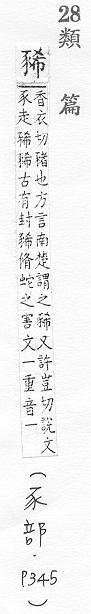 28
類篇
豨
香衣切豬也方言南楚謂之豨又許豈切說文
豕走豨豨古有封豨脩蛇之害文一重音一
（豕部．P345）